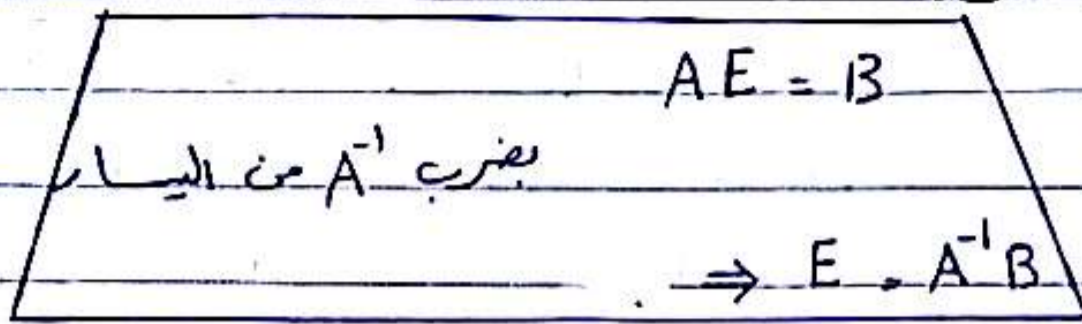 AE = B
بضرب A⁻¹ من اليسار
⇒ E = A⁻¹B